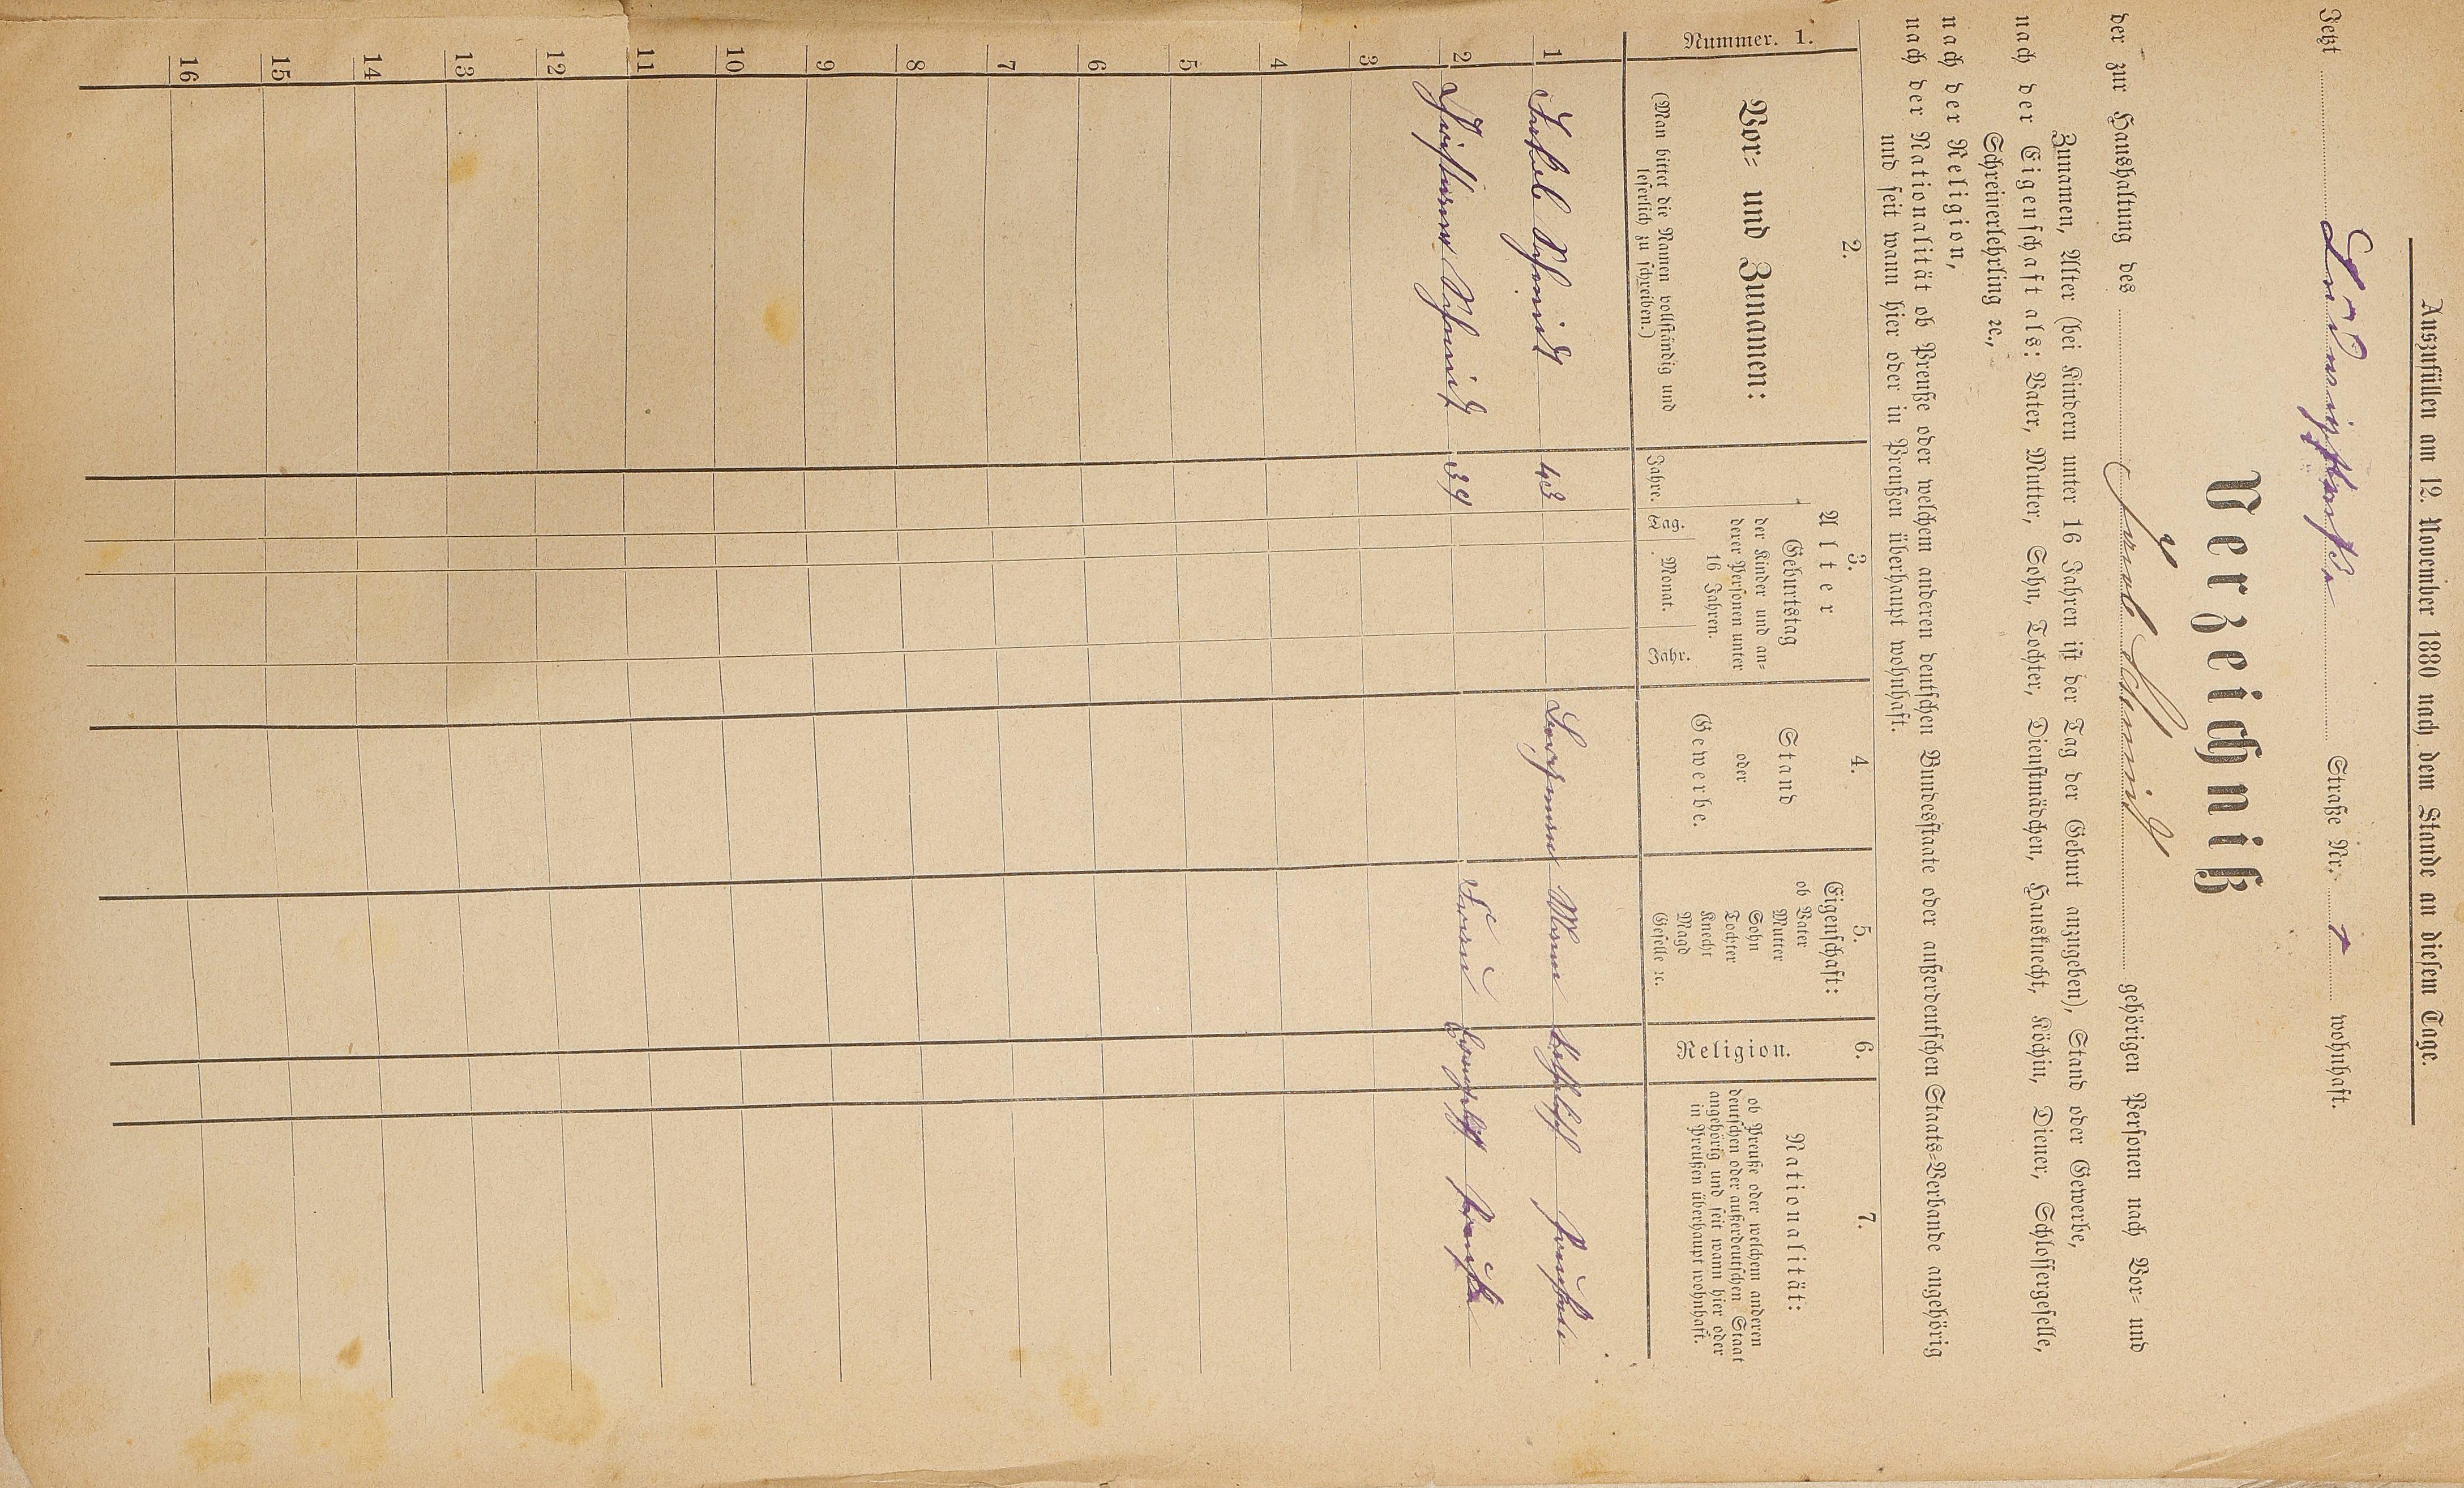 Auszufüllen am 12. November 1880 nach dem Stande an diesem Tage.
Jetzt Ludwigstraße Straße Nr. 1 wohnhaft.
Verzeichniß
der zur Haushaltung des Jakob Schmidt gehörigen Personen nach Vor- und
Zunamen, Alter (bei Kindern unter 16 Jahren ist der Tag der Geburt anzugeben), Stand oder Gewerbe,
nach der Eigenschaft als: Vater, Mutter, Sohn, Tochter, Dienstmädchen, Hausknecht, Köchin, Diener, Schlossergeselle,
Schreinerlehrling ꝛc.,
nach der Religion,
nach der Nationalität ob Preuße oder welchem anderen deutschen Bundesstaate oder außerdeutschen Staats-Verbande angehörig
und seit wann hier oder in Preußen überhaupt wohnhaft.
Nummer. 1.
2.
Vor- und Zunamen:
(Man bittet die Namen vollständig und
leserlich zu schreiben.)
3.
Alter
Jahre.
Geburtstag
der Kinder und an-
derer Personen unter
16 Jahren.
Tag. Monat. Jahr.
4.
Stand
oder
Gewerbe.
5.
Eigenschaft:
ob Vater
Mutter
Sohn
Tochter
Knecht
Magd
Geselle ꝛc.
6.
Religion.
7.
Nationalität:
ob Preuße oder welchem anderen
deutschen oder außerdeutschen Staat
angehörig und seit wann hier oder
in Preußen überhaupt wohnhaft.
1 Jakob Schmidt 43 Mann katholisch Preuße
2 Schmidt 39 Frau evangelisch Preuße
3
4
5
6
7
8
9
10
11
12
13
14
15
16